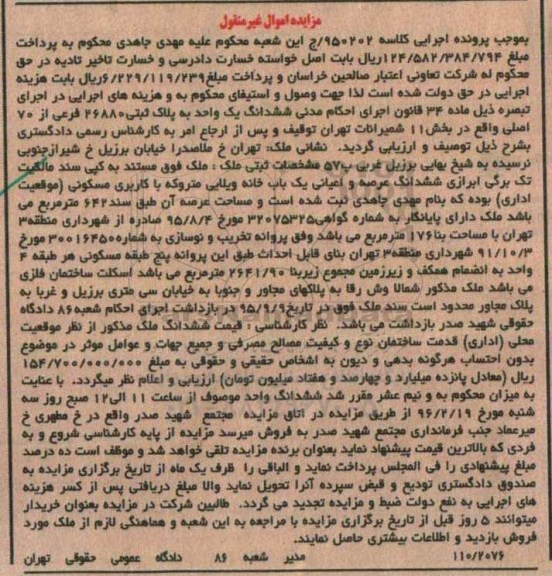 مزایده اموال غیر منقول
بموجب پرونده اجرایی کلاسه ۹۵۰۲۰۲/ج این شعبه محکوم علیه مهدی جاهدی محکوم به پرداخت
مبلغ ۱۲۴/۵۸۲/۳۸۴/۷۹۴ریال بابت اصل خواسته خسارت دادرسی و خسارت تاخیر تادیه در حق
محکوم له شرکت تعاونی اعتبار صالحین خراسان و پرداخت مبلغ۶/۲۲۹/۱۱۹/۲۳۹ریال بابت هزینه
اجرایی در حق دولت شده است لذا جهت وصول و استیفای محکوم به و هزینه های اجرایی در اجرای
تبصره ذیل ماده ۳۴ قانون اجرای احکام مدنی ششدانگ یک واحد به پلاک ثبتی۲۶۸۸۰ فرعی از ۷۰
اصلی واقع در بخش۱۱ شمیرانات تهران توقیف و پس از ارجاع امر به کارشناس رسمی دادگستری
بشرح ذیل توصیف و ارزیابی گردید. نشانی ملک: تهران خ ملاصدرا خیابان برزیل خ شیرازجنوبی
نرسیده به شیخ بهایی برزیل غربی پ۵۷ مشخصات ثبتی ملک : ملک فوق مستند به کپی سند مالکیت
تک برگی ابرازی ششدانگ عرصه و اعیانی یک باب خانه ویلایی متروکه با کاربری مسکونی (موقعیت
اداری) بوده که بنام مهدی جاهدی ثبت شده است و مساحت عرصه آن طبق سند۶۴۲ مترمربع می
باشد ملک دارای پایانکار به شماره گواهی۳۲۰۷۵۳۲۵ مورخ ۹۵/۸/۴ صادره از شهرداری منطقه۳
تهران با مساحت بنا۱۷۶ مترمربع می باشد وفق پروانه تخریب و نوسازی به شماره۳۰۰۱۶۴۵۰ مورخ
۹۱/۱۰/۳ شهرداری منطقه۳ تهران بنای قابل احداث طبق این پروانه پنج طبقه مسکونی هر طبقه ۴
واحد به انضمام همکف و زیرزمین مجموع زیربنا ۲۶۴۱/۹۰ مترمربع می باشد اسکلت ساختمان فلزی
می باشد ملک مذکور شمالا وش رقا به پلاکهای مجاور و جنوبا به خیابان سی متری برزیل و غربا به
پلاک مجاور محدود است سند ملک فوق در تاریخ۹۵/۹/۹ در بازداشت اجرای احکام شعبه۸۶ دادگاه
حقوقی شهید صدر بازداشت می باشد. نظر کارشناسی : قیمت ششدانگ ملک مذکور از نظر موقعیت
محلی (اداری) قدمت ساختمان نوع و کیفیت مصالح مصرفی و جمیع جهات و عوامل موثر در موضوع
بدون احتساب هرگونه بدهی و دیون به اشخاص حقیقی و حقوقی به مبلغ ۱۵۴/۷۰۰/۰۰۰/۰۰۰
ریال (معادل پانزده میلیارد و چهارصد و هفتاد میلیون تومان) ارزیابی و اعلام نظر میگردد. با عنایت
به میزان محکوم به و نیم عشر مقرر شد ششدانگ واحد موصوف از ساعت ۱۱ الی۱۲ صبح روز سه
شنبه مورخ ۹۶/۲/۱۹ از طریق مزایده در اتاق مزایده مجتمع شهید صدر واقع در خ مطهری خ
میرعماد جنب فرمانداری مجتمع شهید صدر به فروش میرسد مزایده از پایه کارشناسی شروع و به
فردی که بالاترین قیمت پیشنهاد نماید بعنوان برنده مزایده تلقی خواهد شد و موظف است ده درصد
مبلغ پیشنهادی را فی المجلس پرداخت نماید و الباقی را ظرف یک ماه از تاریخ برگزاری مزایده به
صندوق دادگستری تودیع و قبض سپرده آنرا تحویل نماید والا مبلغ دریافتی پس از کسر هزینه
های اجرایی به نفع دولت ضبط و مزایده تجدید می گردد. طالبین شرکت در مزایده بعنوان خریدار
میتوانند ۵ روز قبل از تاریخ برگزاری مزایده با مراجعه به این شعبه و هماهنگی لازم از ملک مورد
فروش بازدید و اطلاعات بیشتری حاصل نمایند.
۱۱۰/۲۰۷۶ مدیر شعبه ۸۶ دادگاه عمومی حقوقی تهران